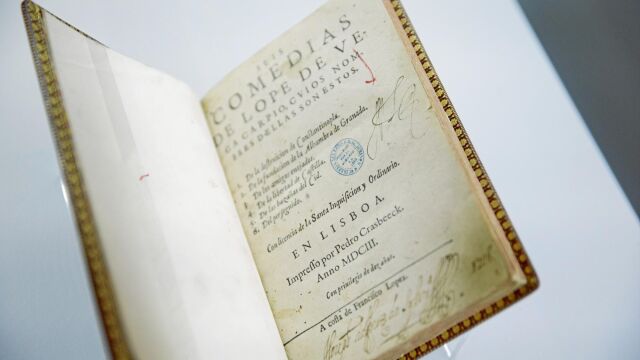 SEIS
COMEDIAS
DE LOPE DE VE-
GA CARPIO, CVIOS NOM-
BRES DELLAS SON ESTOS.
1. De la destruicion de Constantinopla.
2. De la fundacion de la Alhambra de Granada.
3. De los amigos enojados.
4. De la libertad de Castilla.
5. De las hazañas del Cid.
6. Del perseguido.
Con licencia de la Santa Inquisicion y Ordinario.
EN LISBOA.
Impresso por Pedro Crasbeeck.
Anno MDCIII.
Con privilegio de dez años.
A costa de Francisco Lopez.